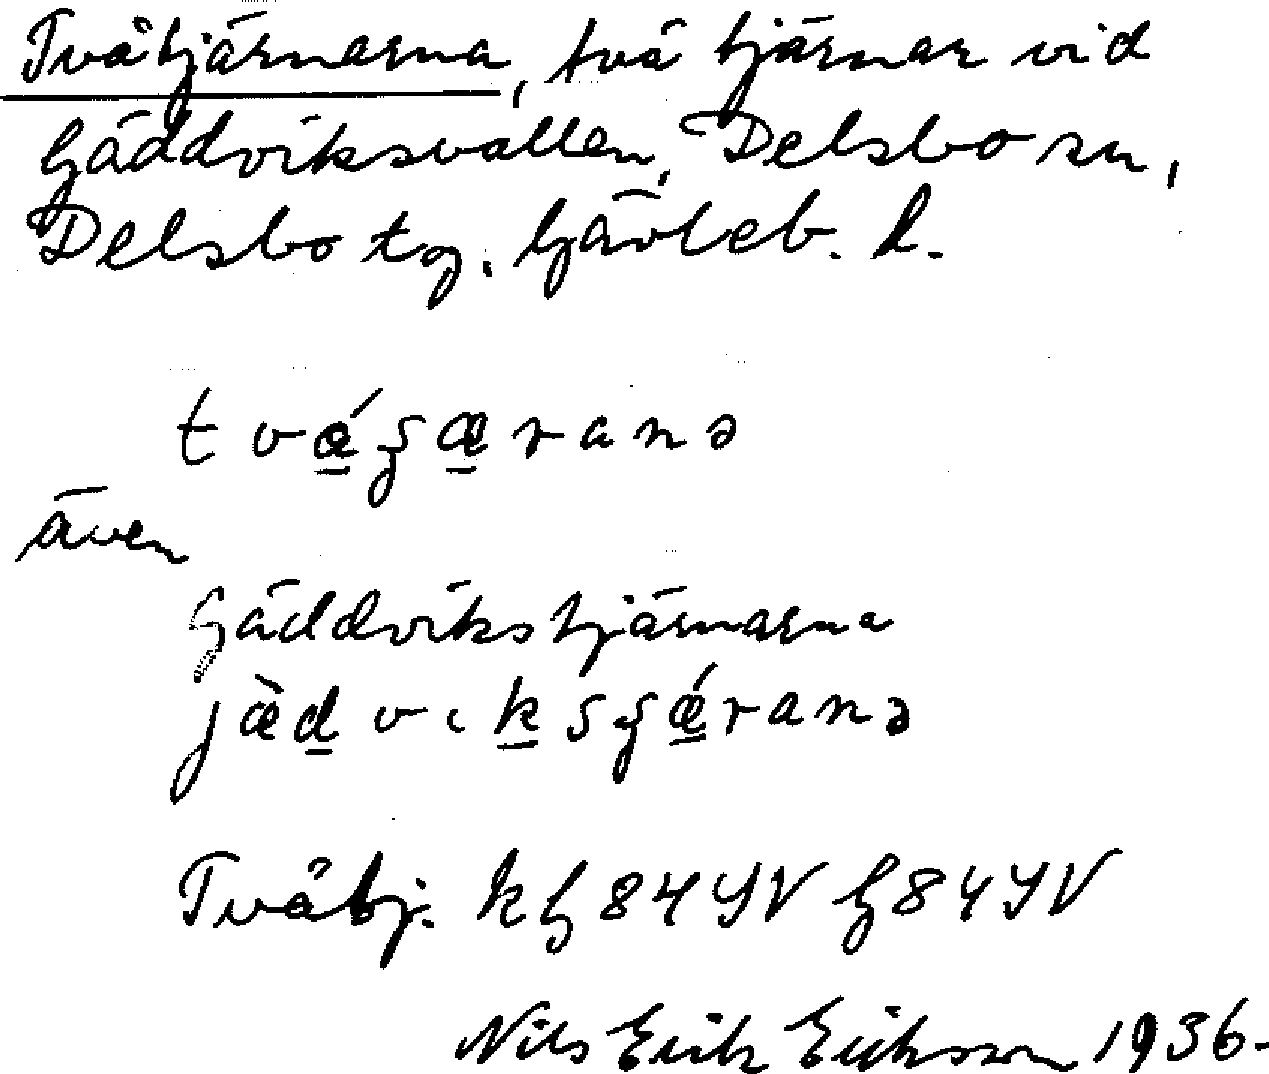 Tvåtjärnarna, två tjärnar vid
Gäddviksvallen, Delsbo sn,
Delsbo tg. Gävleb. l.
även
Gäddvikstjärnarna
Tvåtj. kg 84 SV g 84 SV
Nils Erik Eriksson 1936.